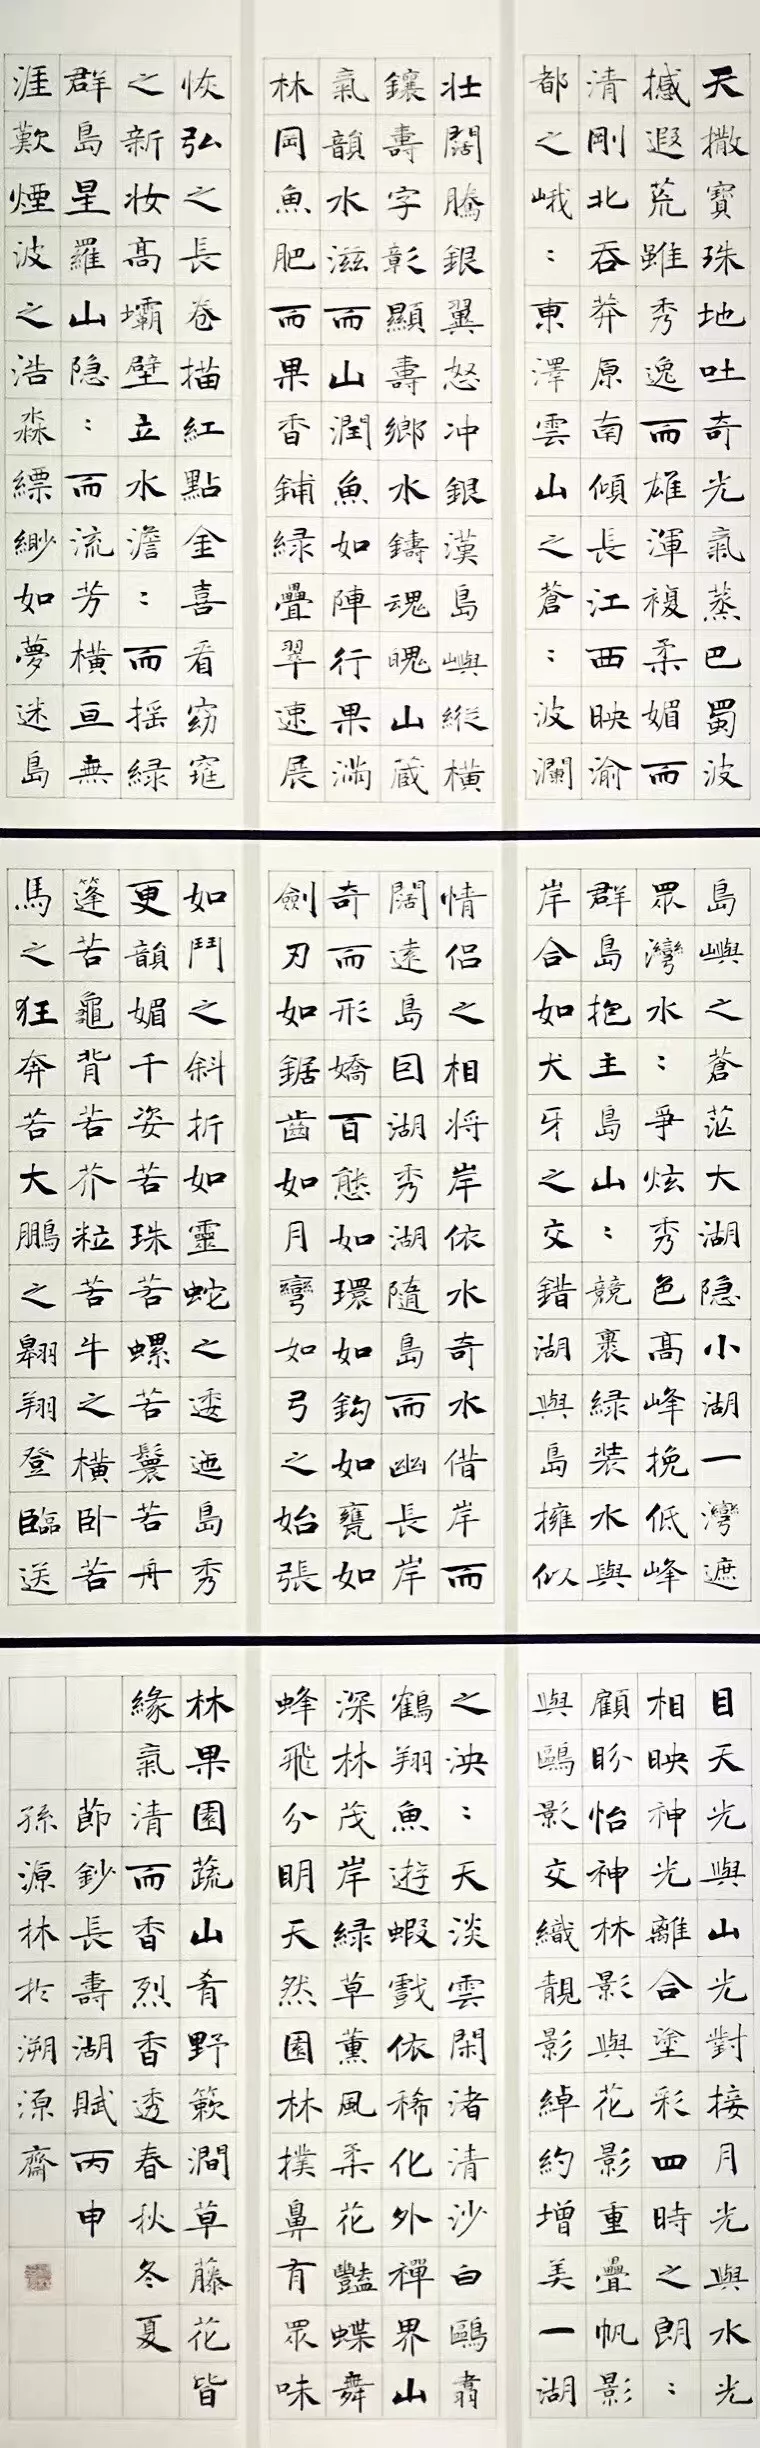 天撒寶珠地吐奇光氣蒸巴蜀波
撼遐荒雖秀逸而雄渾複柔媚而
清剛北吞莽原南傾長江西映渝
都之峨：東澤雲山之蒼：波瀾
壯闊騰銀翼怒冲銀漢島嶼縱橫
鑲壽字彰顯壽鄉水鑄魂魄山藏
氣韻水滋而山潤魚如陣行果滿
林岡魚肥而果香鋪綠疊翠速展
恢弘之長卷描紅點金喜看窈窕
之新妝高壩壁立水澹：而摇綠
群島星羅山隐：而流芳橫亘無
涯歎煙波之浩淼縹緲如夢迷島
島嶼之蒼茫大湖隐小湖一灣遮
眾灣水：爭炫秀色高峰挽低峰
群島抱主島山：競裹綠装水與
岸合如犬牙之交錯湖與島擁似
情侣之相将岸依水奇水借岸而
闊遠島囙湖秀湖隨島而幽長岸
奇而形嬌百態如環如鈎如甕如
劍刃如鋸齒如月彎如弓之始張
如鬥之斜折如靈蛇之逶迤島秀
更韻媚千姿若珠若螺若鬟若舟
篷若龜背若芥粒若牛之橫卧若
馬之狂奔若大鵬之翱翔登臨送
目天光與山光對接月光與水光
相映神光離合塗彩四時之朗：
顧盼怡神林影與花影重疊帆影
與鷗影交織靚影綽約增美一湖
之泱：天淡雲閑渚清沙白鷗翥
鶴翔魚遊蝦戲依稀化外禪界山
深林茂岸綠草薰風柔花豔蝶舞
蜂飛分明天然園林撲鼻育眾味
林果園蔬山肴野蔌澗草藤花皆
緣氣清而香烈香透春秋冬夏
節鈔長壽湖賦丙申
孫源林於溯源齋